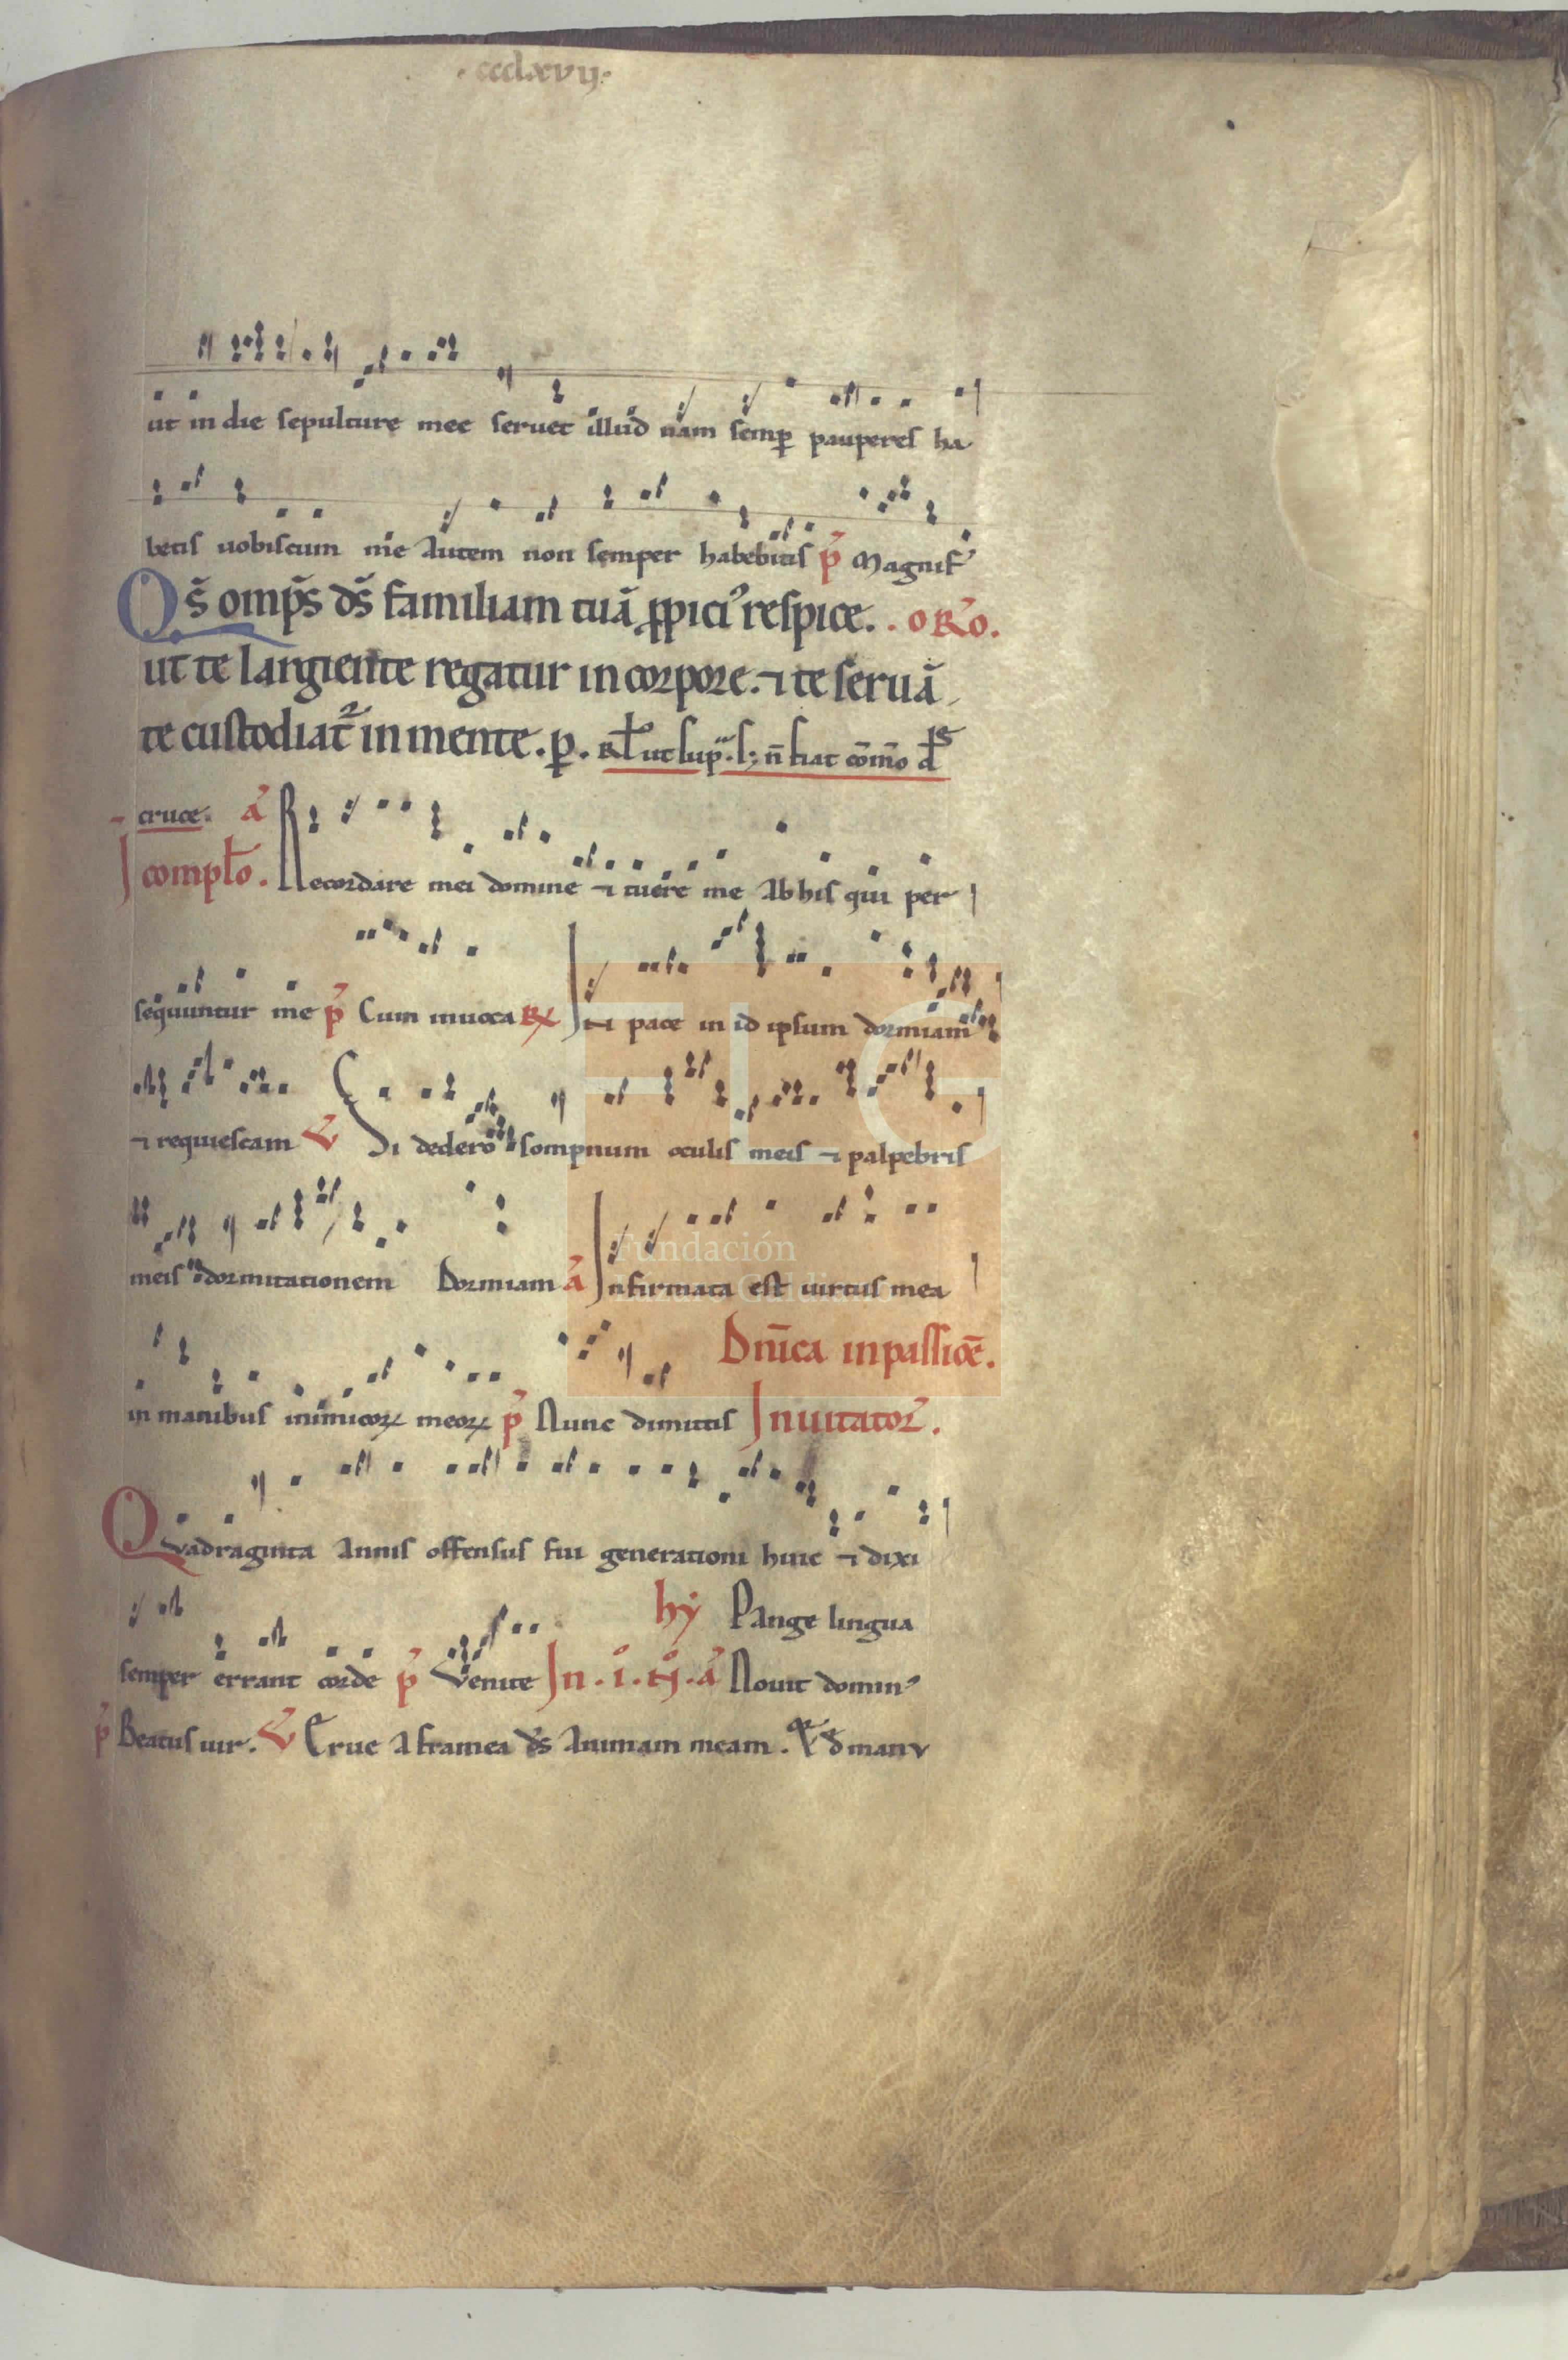 ·ccclxvij·
ut in die sepulture mee seruet illud nam semp pauperes ha
betis uobiscum me Autem non semper habebitis p̃ Magnif
Qs̃ omp̃s ds̃ familiam tuã ꝓpici' respice. . oRo.
ut te largiente regatur in corpore. ⁊ te seruã
te custodiat᷑ in mente. p. ut sup. n̄ fiat cõmo d
cruce. a᷑
Recordare mei domine ⁊ tuere me Ab his qui per
compl̃o.
sequuntur me p̃ Cum inuoca ℟ In pace in id ipsum dormiam
⁊ requiescam V Si dedero sompnum oculis meis ⁊ palpebris
meis dormitationem Dormiam a᷑ Infirmata est uirtus mea
Dñica in passiõe.
in manibus inimicoꝝ meoꝝ p̃ Nunc dimittis Inuitator.
Quadraginta Annis offensus fui generationi huic ⁊ dixi
hy Pange lingua
semper errant corde p̃ Venite In . i . a᷑ Nouit domin'
p̃ Beatus uir. V Erue A framea ds̃ Animam meam. d manu
Fundación